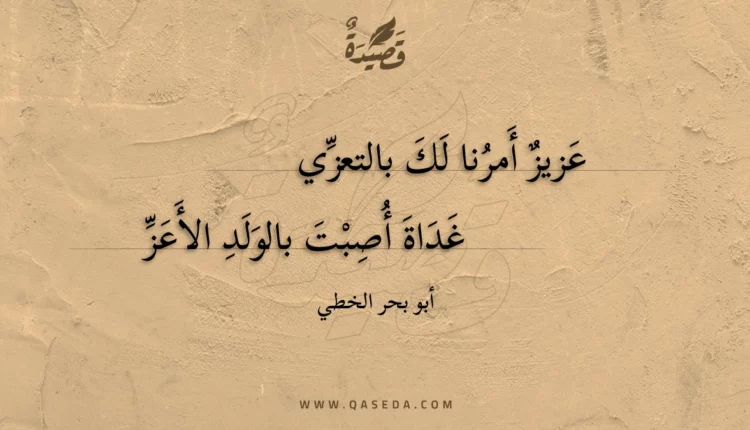 قَصِيدَةٌ
عَزيزٌ أَمرُنا لَكَ بالتعزِّي
غَدَاةَ أُصِبْتَ بالوَلَدِ الأَعَزِّ
أبو بحر الخطي
WWW.QASEDA.COM